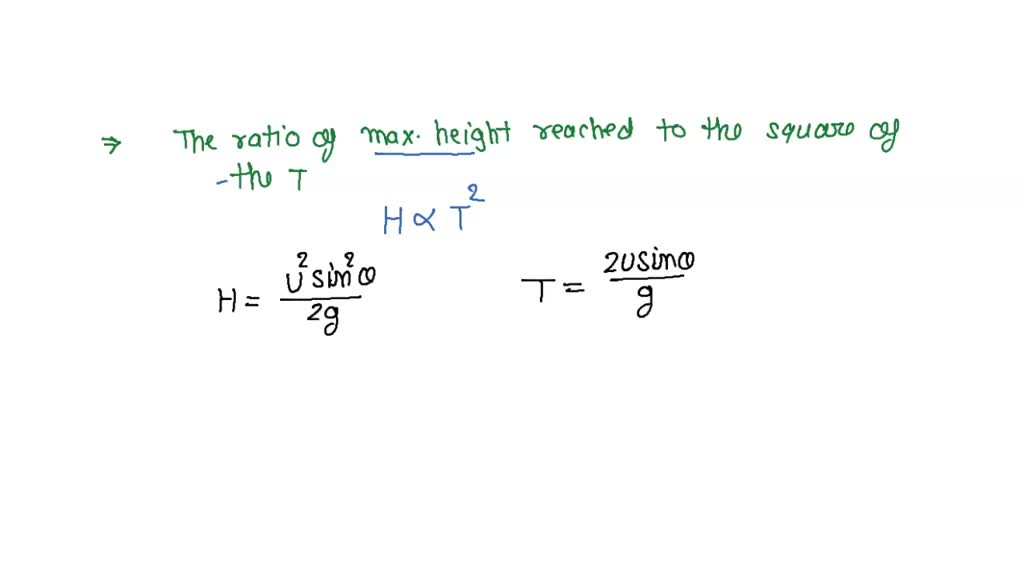 ⇒ The ratio of max. height reached to the square of
the T
H ∝ T²
H = U² sin² θ / 2g
T = 2U sin θ / g